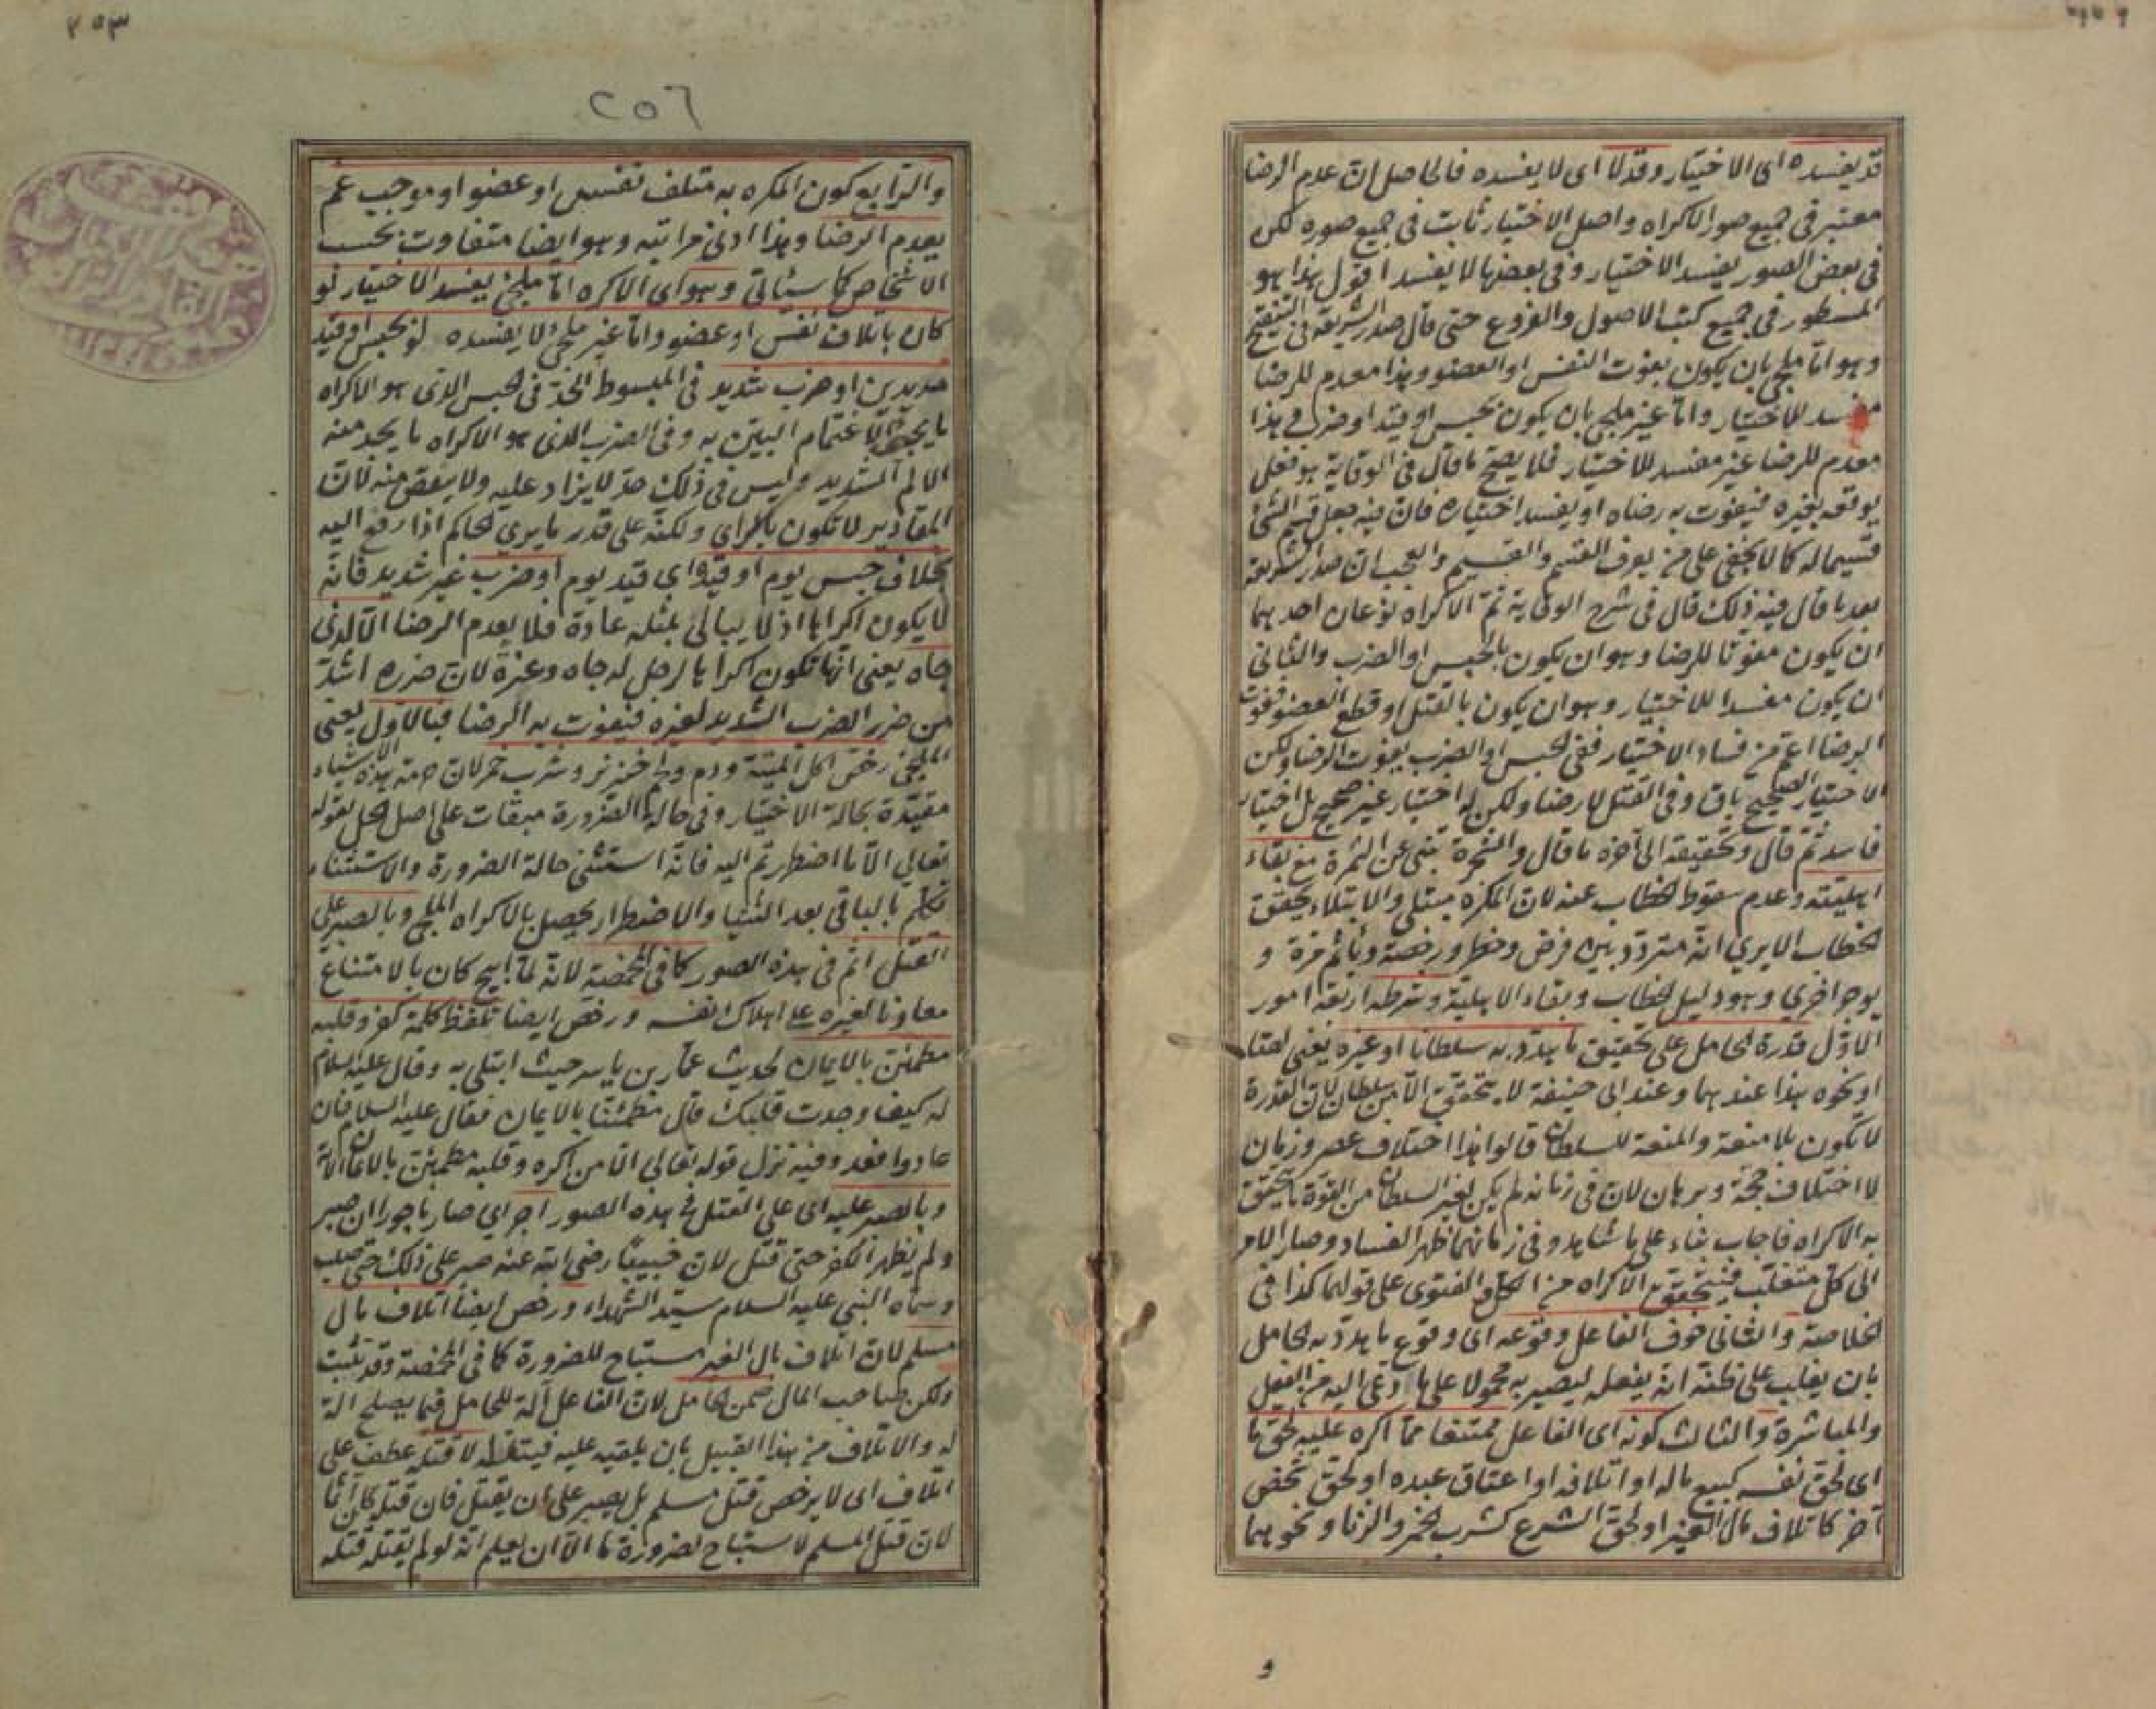 قد يفسده اى الاختيار وقد لا اى لا يفسده فالحاصل ان عدم الرضا
معتبر فى جميع صور الاكراه واصل الاختيار ثابت فى جميع صوره لكن
فى بعض الصور يفسد الاختيار وفى بعضها لا يفسد اقول هذا هو
المسطور فى جميع كتب الاصول والفروع حتى قال صدر الشريعة فى التنقيح
وهو اما ملجئ بان يكون بفوت النفس او العضو وهذا معدم للرضا
مفسد للاختيار واما غير ملجئ بان يكون بحبس او قيد او ضرب وهذا
معدم للرضا غير مفسد للاختيار فلا يصح ما قال فى الوقاية هو فعل
يوقعه بغيره فيفوت به رضاه او يفسد اختياره فان فيه جعل قسم الشئ
قسيما له كما لا يخفى على من يعرف القسم والقسيم والعجب ان صدر الشريعة
بعد ما قال فيه ذلك قال فى شرح الوقاية ثم الاكراه نوعان احدهما
ان يكون مفوتا للرضا وهو ان يكون بالحبس او الضرب والثانى
ان يكون مفسدا للاختيار وهو ان يكون بالقتل او قطع العضو ففوت
الرضا اعم من فساد الاختيار ففى الحبس او الضرب يفوت الرضا ولكن
الاختيار الصحيح باق وفى القتل لا رضا ولكن له اختيار غير صحيح بل اختيار
فاسد ثم قال وتحقيقه الى آخره ما قال والشجرة تنبئ عن الثمرة مع بقاء
اهليته وعدم سقوط الخطاب عنه لان المكره مبتلى والابتلاء يحقق
الخطاب الا يرى انه متردد بين فرض وحظر ورخصة ويأثم مرة و
يوجر اخرى وهو دليل الخطاب وبقاء الاهلية وشرطه اربعة امور
الاول قدرة الحامل على تحقيق ما هدد به سلطانا او غيره يعنى لصا
او نحوه هذا عندهما وعند ابى حنيفة لا يتحقق الا من سلطان لان القدرة
لا تكون بلا منعة والمنعة للسلطان قالوا هذا اختلاف عصر وزمان
لا اختلاف حجة وبرهان لان فى زمانه لم يكن لغير السلطان من القوة ما يتحقق
به الاكراه فاجاب بناء على ما شاهد وفى زمانهما ظهر الفساد وصار الامر
الى كل متغلب فيتحقق الاكراه من الكل والفتوى على قولهما كذا فى
الخلاصة والثانى خوف الفاعل وقوعه اى وقوع ما هدد به الحامل
بان يغلب على ظنه انه يفعله ليصير به محمولا على ما دعى اليه من الفعل
والمباشرة والثالث كونه اى الفاعل ممتنعا مما اكره عليه لحق ما
اى لحق نفسه كبيع ماله او اتلافه او اعتاق عبده او لحق شخص
آخر كاتلاف مال الغير او لحق الشرع كشرب الخمر والزنا ونحوهما
و
٢٥٣
٢٥٦
والرابع كون المكره به متلف نفس او عضو او موجب غم
يعدم الرضا وهذا ادنى مراتبه وهو ايضا متفاوت بحسب
الاشخاص كما سيأتى وهو اى الاكره اما ملجئ يفسد الاختيار لو
كان باتلاف نفس او عضو واما غير ملجئ لا يفسده لو بحبس او قيد
مديدين او ضرب شديد فى المبسوط الحد فى الحبس الذى هو الاكراه
ما يجئ الاغتمام البين به وفى الضرب الذى هو الاكراه ما يجد منه
الالم الشديد وليس فى ذلك حد لا يزاد عليه ولا ينقص منه لان
المقادير لا تكون بالرأى ولكنه على قدر ما يرى الحاكم اذا رفع اليه
بخلاف حبس يوم او قيده اى قيد يوم او ضرب غير شديد فانه
لا يكون اكراها اذ لا يبالى بمثله عادة فلا يعدم الرضا الا لذى
جاه يعنى انها تكون اكراها لرجل له جاه وعزة لان ضرره اشد
من ضرر الضرب الشديد لغيره فيفوت به الرضا فبالاول يعنى
الملجئ رخص اكل الميتة ودم ولحم خنزير وشرب خمر لان حرمة هذه الاشياء
مقيدة بحالة الاختيار وفى حالة الضرورة مبقات على اصل الحل بقوله
تعالى الا ما اضطررتم اليه فانه استثنى حالة الضرورة والاستثناء
تكلم بالباقى بعد الثنيا والاضطرار يحصل بالاكراه الملجئ وبالصبر على
القتل اثم فى هذه الصور كما فى المخمصة لانه لما ابيح كان بالامتناع
معاونا لغيره على اهلاك نفسه ورخص ايضا تلفظ كلمة كفر وقلبه
مطمئن بالايمان لحديث عمار بن ياسر حيث ابتلى به وقال عليه السلام
له كيف وجدت قلبك قال مطمئنا بالايمان فقال عليه السلام فان
عادوا فعد وفيه نزل قوله تعالى الا من اكره وقلبه مطمئن بالايمان الآية
وبالصبر عليه اى على القتل فى هذه الصور اجر اى صار ماجورا ان صبر
ولم يظهر الكفر حتى قتل لان خبيبا رضى الله عنه صبر على ذلك حتى صلب
وسماه النبى عليه السلام سيد الشهداء ورخص ايضا اتلاف مال
مسلم لان اتلاف مال الغير مستباح للضرورة كما فى المخمصة وقد تثبت
ولكن صاحب المال ضمن الحامل لان الفاعل آلة للحامل فيما يصلح آلة
له والاتلاف من هذا القبيل بان يلقيه عليه فيتلفه لا قتله عطف على
اتلاف اى لا يرخص قتل مسلم بل يصبر على ان يقتل فان قتله كان آثما
لان قتل المسلم لا يستباح لضرورة ما الا ان يعلم انه لو لم يقتله قتله